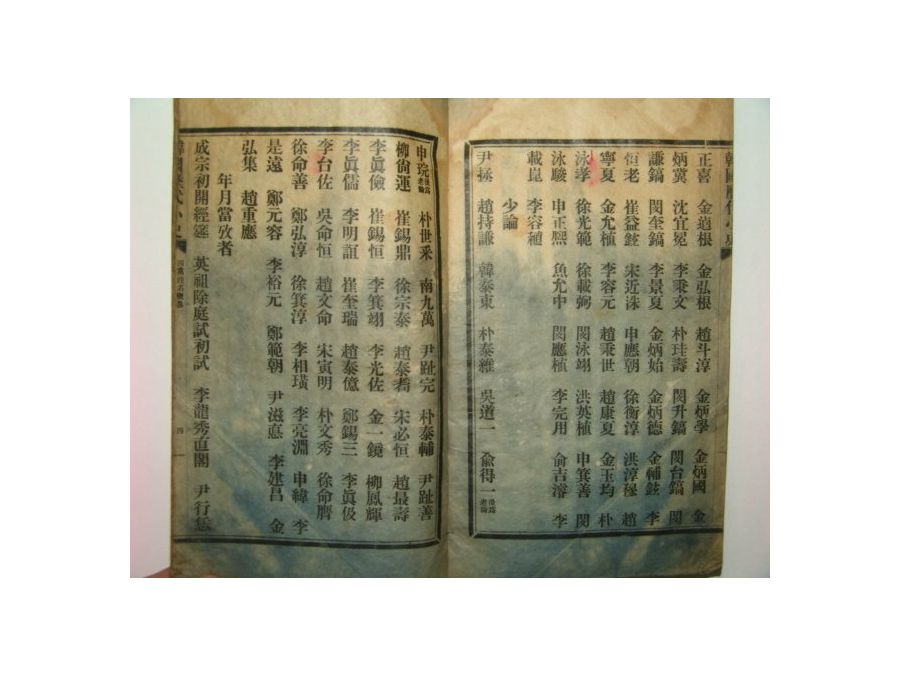 韓國歷代小史
正喜 金逌根 金弘根 趙斗淳 金炳學 金炳國 金
炳冀 沈宜冕 李秉文 朴珪壽 閔升鎬 閔台鎬 閔
謙鎬 閔奎鎬 李景夏 金炳始 金炳德 金輔鉉 李
恒老 崔益鉉 宋近洙 申應朝 徐衡淳 洪淳穆 趙
寧夏 金允植 李容元 趙秉世 趙康夏 金玉均 朴
泳孝 徐光範 徐載弼 閔泳翊 洪英植 申箕善 閔
泳駿 申正熙 魚允中 閔應植 李完用 俞吉濬 李
載崑 李容稙
少論
尹拯 趙持謙 韓泰東 朴泰維 吳道一 兪得一 後爲老論
申琓 後爲老論 朴世采 南九萬 尹趾完 朴泰輔 尹趾善
柳尙運 崔錫鼎 徐宗泰 趙泰耉 宋必恒 趙最壽
李眞儉 崔錫恒 李箕翊 李光佐 金一鏡 柳鳳輝
李眞儒 李明誼 崔奎瑞 趙泰億 鄭錫三 李眞伋
李台佐 吳命恒 趙文命 宋寅明 朴文秀 徐命膺
徐命善 鄭弘淳 徐箕淳 李相璜 李亮淵 申緯 李
是遠 鄭元容 李裕元 鄭範朝 尹滋悳 李建昌 金
弘集 趙重應
年月當攷者
成宗初開經筵 英祖除庭試初試 李龍秀直閣 尹行恁
韓國歷代小史 四